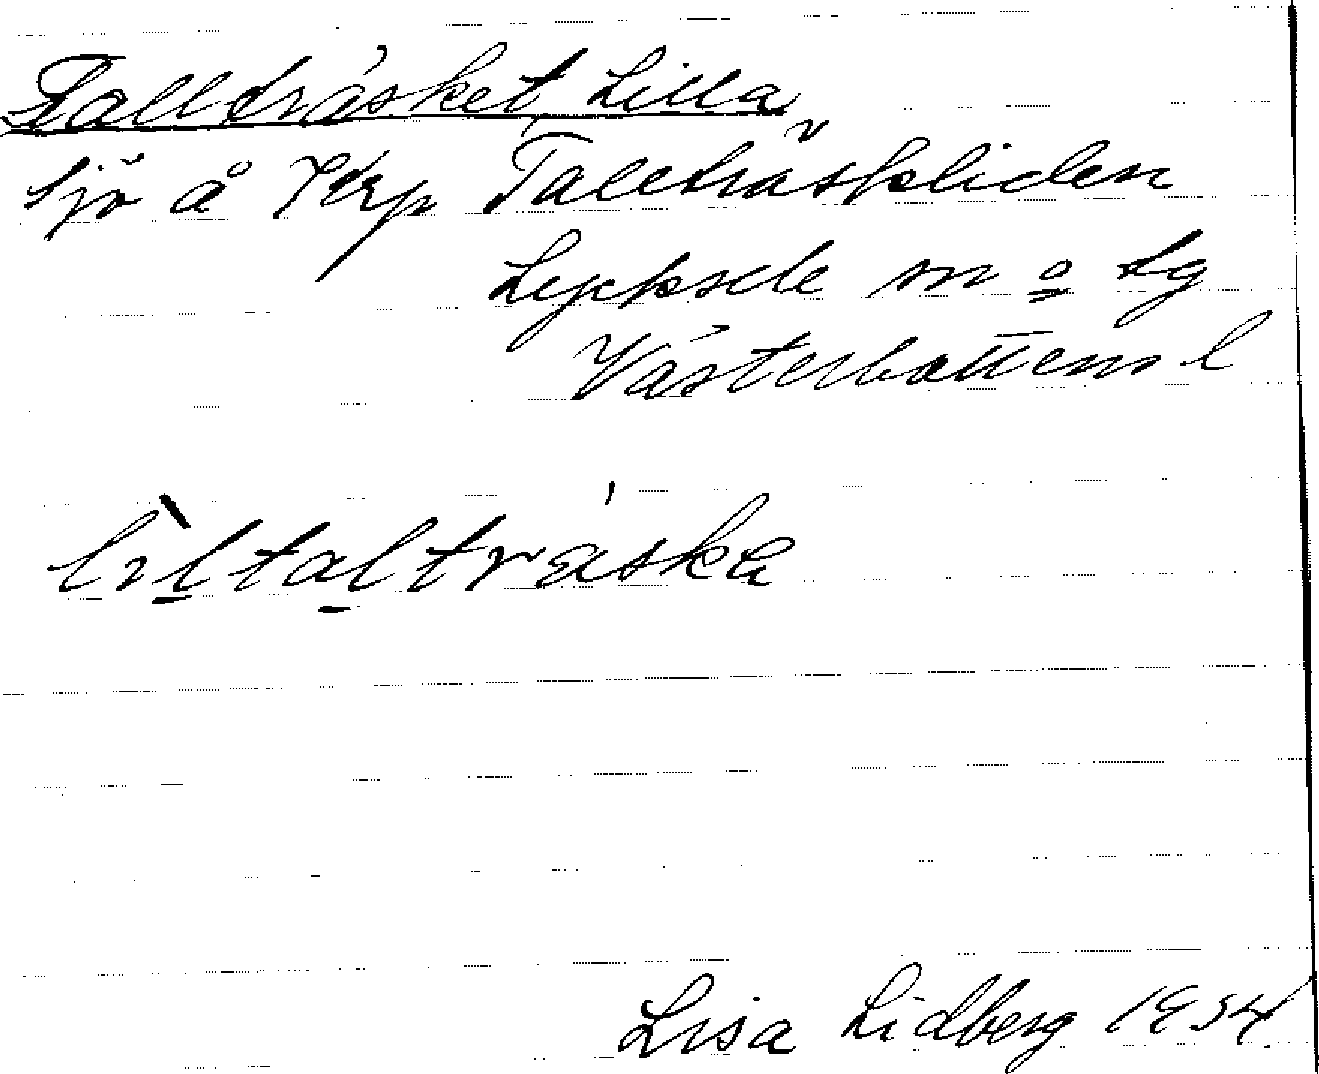 Talltråsket Lilla
Sjö å Krp Tallträskliden
Lycksele sn o Lg
Västerbottens l
lìltaltráska
Lisa Lidberg 1934